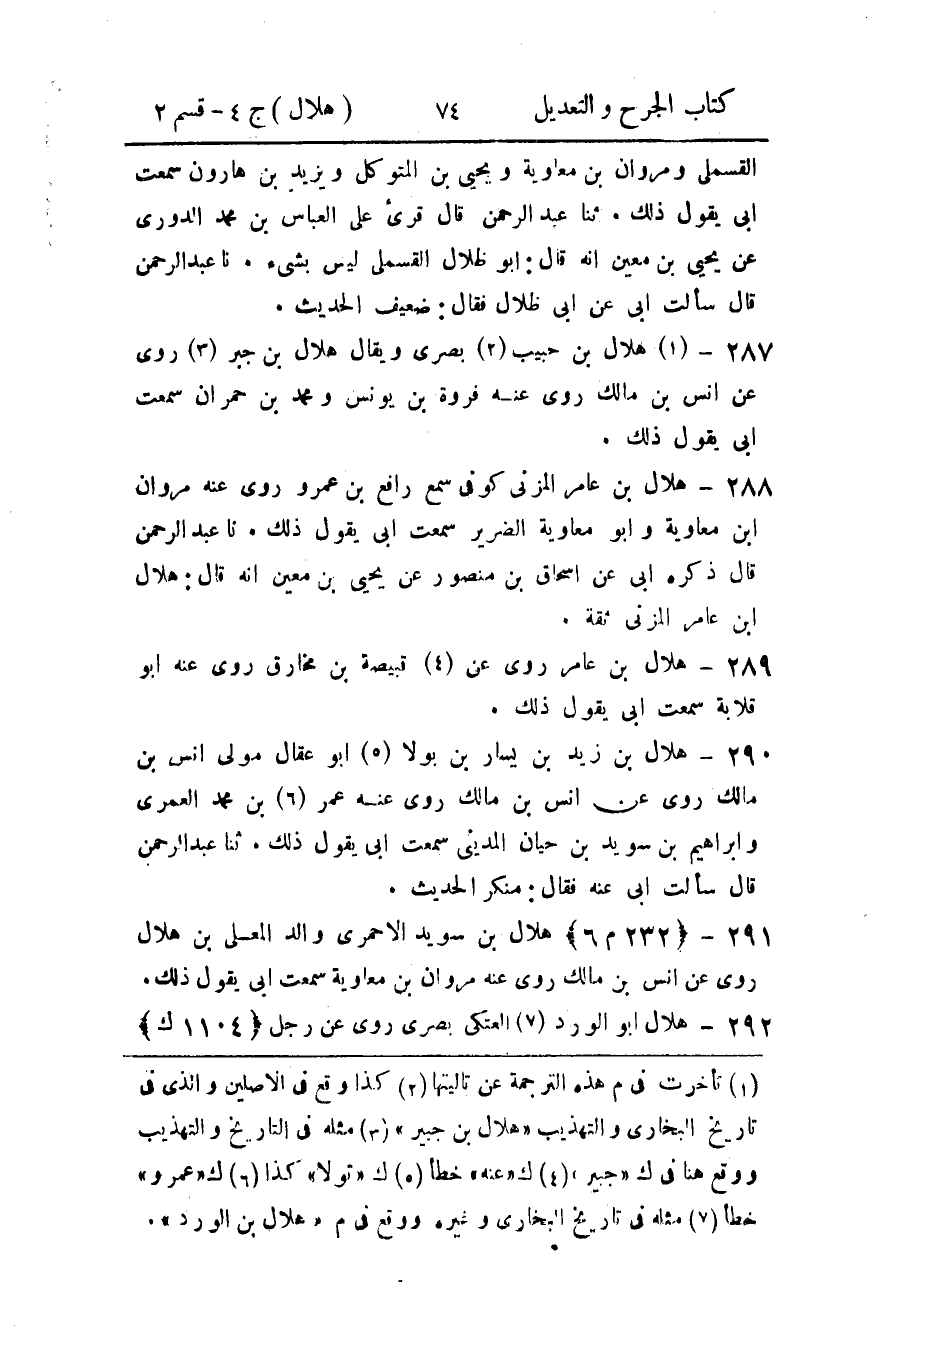 كتاب الجرح والتعديل ٧٤ (هلال) ج ٤ - قسم ٢
القسملى ومروان بن معاوية ويحيى بن المتوكل ويزيد بن هارون سمعت
ابى يقول ذلك . ثنا عبد الرحمن قال قرئ على العباس بن محمد الدورى
عن يحيى بن معين انه قال: ابو ظلال القسملى ليس بشىء . نا عبدالرحمن
قال سألت ابى عن ابى ظلال فقال: ضعيف الحديث .
٢٨٧ - (١) هلال بن حبيب (٢) بصرى ويقال هلال بن جبر (٣) روى
عن انس بن مالك روى عنه فروة بن يونس ومحمد بن حمران سمعت
ابى يقول ذلك .
٢٨٨ - هلال بن عامر المزنى كوفى سمع رافع بن عمرو روى عنه مروان
ابن معاوية وابو معاوية الضرير سمعت ابى يقول ذلك . نا عبد الرحمن
قال ذكره ابى عن اسحاق بن منصور عن يحيى بن معين انه قال: هلال
ابن عامر المزنى ثقة .
٢٨٩ - هلال بن عامر روى عن (٤) قبيصة بن مخارق روى عنه ابو
قلابة سمعت ابى يقول ذلك .
٢٩٠ - هلال بن زيد بن يسار بن بولا (٥) ابو عقال مولى انس بن
مالك روى عن انس بن مالك روى عنه عمر (٦) بن محمد العمرى
وابراهيم بن سويد بن حيان المدينى سمعت ابى يقول ذلك . ثنا عبدالرحمن
قال سألت ابى عنه فقال: منكر الحديث .
٢٩١ - {٢٣٢ م ٦} هلال بن سويد الاحمرى والد المعلى بن هلال
روى عن انس بن مالك روى عنه مروان بن معاوية سمعت ابى يقول ذلك.
٢٩٢ - هلال ابو الورد (٧) العتكى بصرى روى عن رجل {١١٠٤ ك}
(١) تأخرت فى م هذه الترجمة عن تاليتها (٢) كذا وقع فى الاصلين والذى فى
تاريخ البخارى والتهذيب «هلال بن جبير» (٣) مثله فى التاريخ والتهذيب
ووقع هنا فى ك «جبير» (٤) ك «عنه» خطأ (٥) ك «تولا» كذا (٦) ك «عمرو»
خطأ (٧) مثله فى تاريخ البخارى وغيره ووقع فى م «هلال بن الورد» .